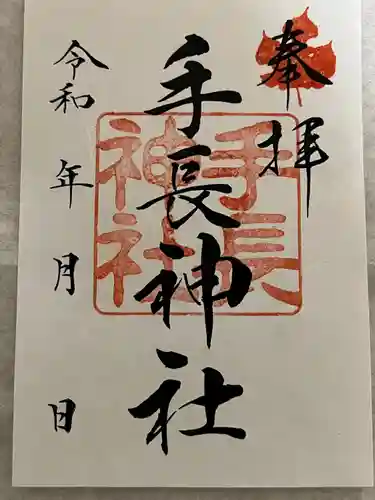 奉拝
手長神社
手長神社
令和 年 月 日